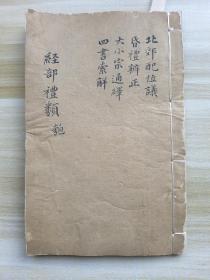 北郊配位議
昏禮辨正
大小宗通繹
四書索解
経部禮類